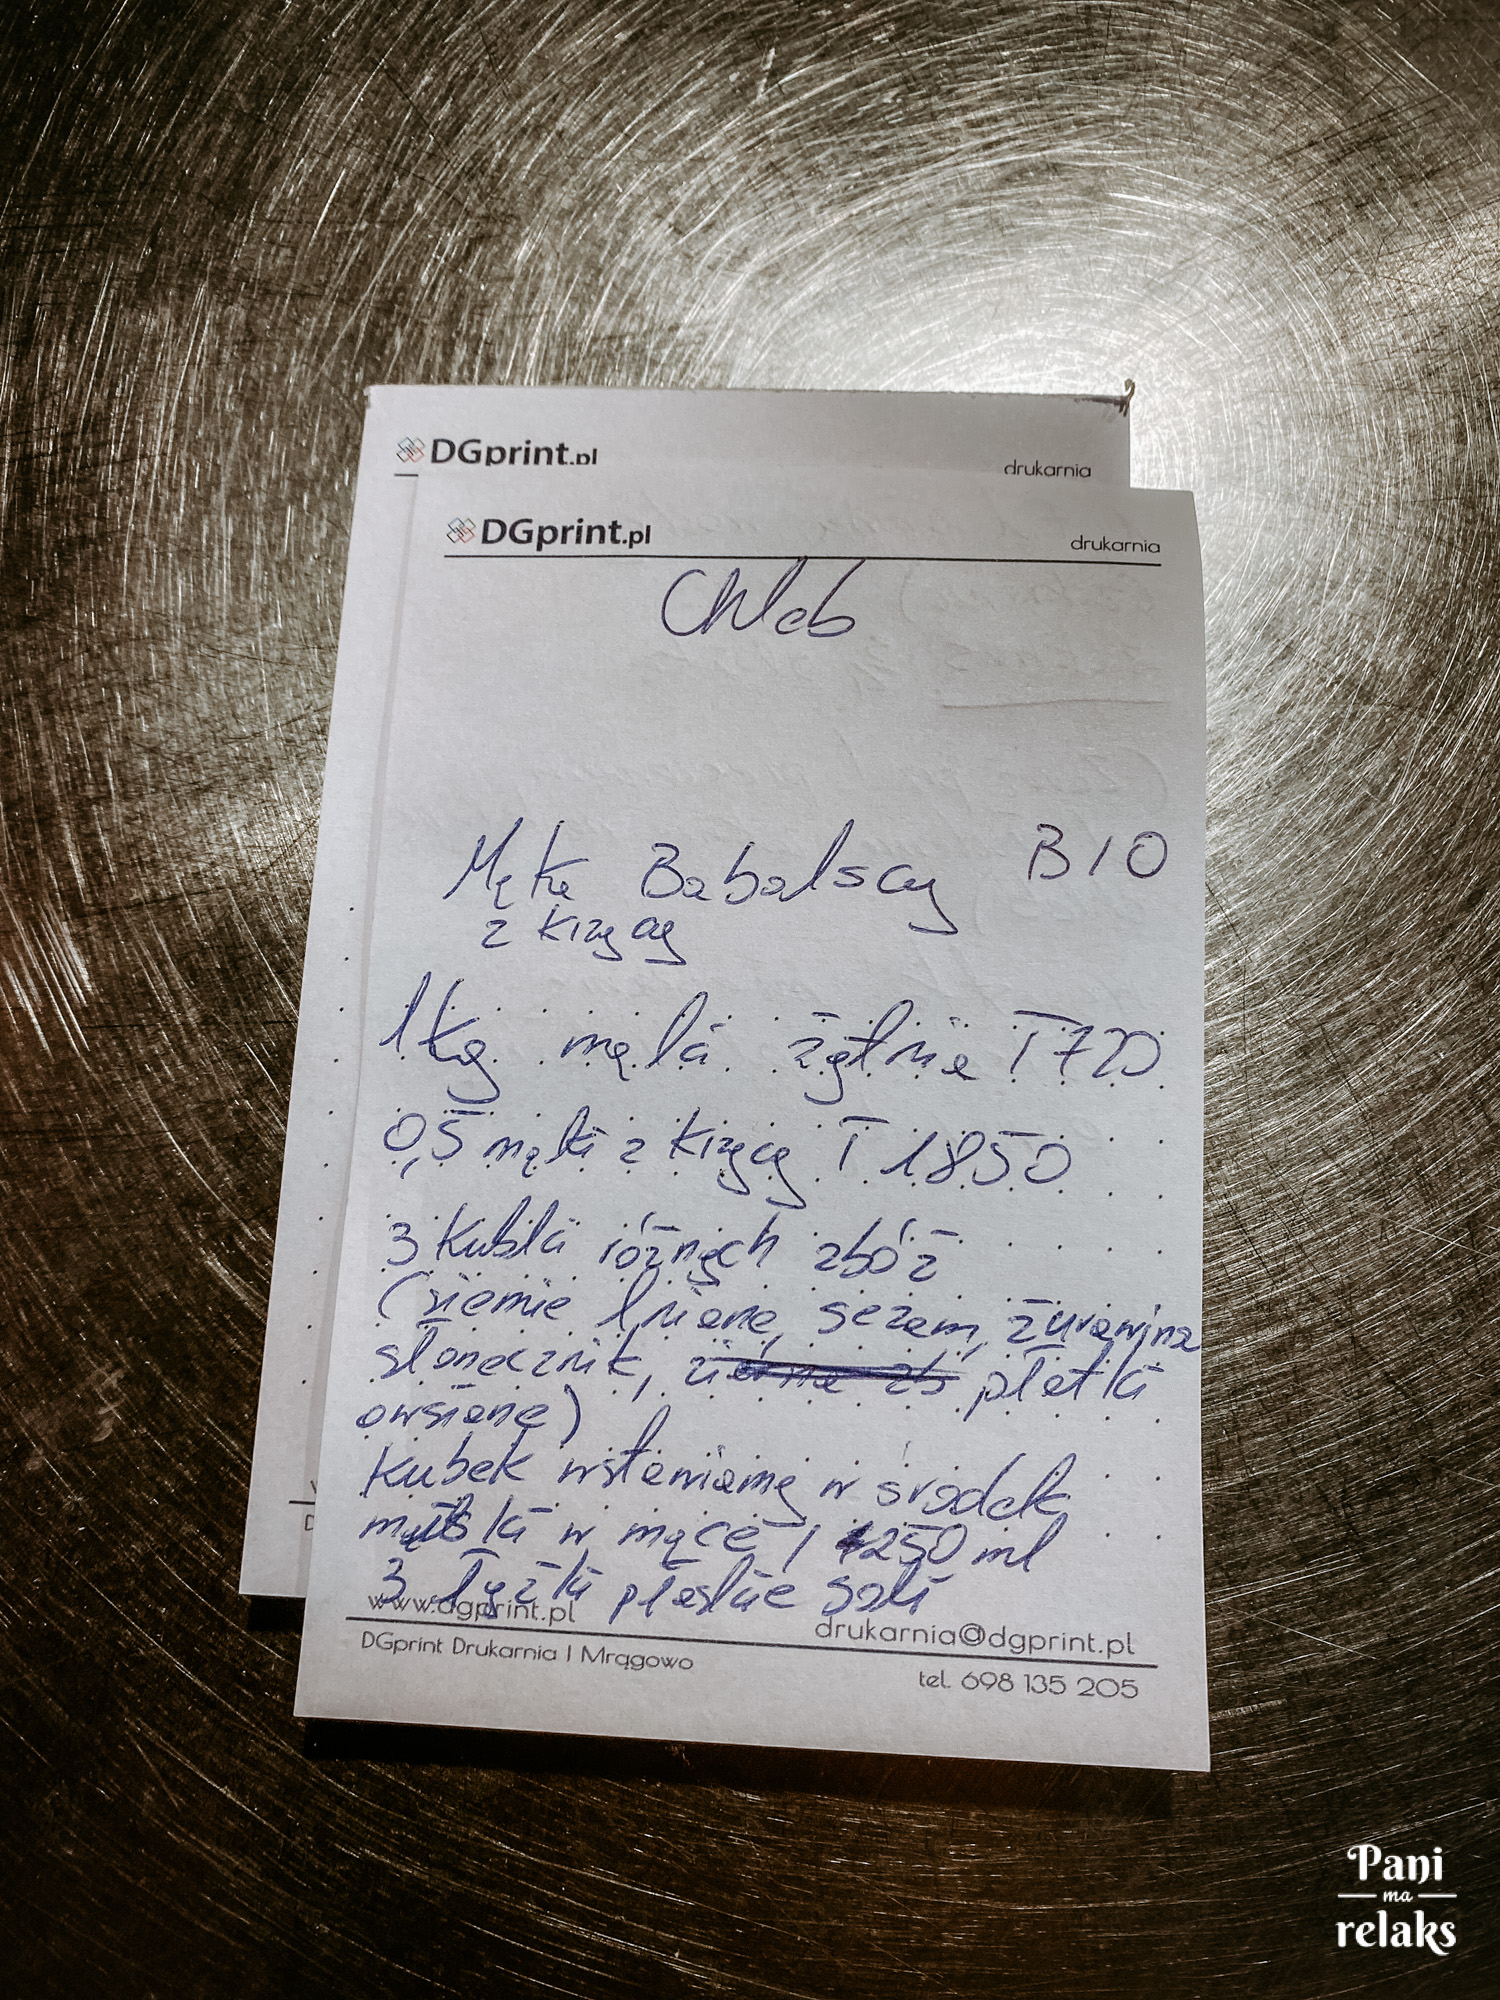 DGprint.pl drukarnia
DGprint.pl drukarnia
Chleb
Mąka Babalscy BIO
z krzycy
1 kg mąki żytnia T720
0,5 mąki z krzycy T 1850
3 kubki różnych zbóż
(siemie lniane, sezam, żurawina
słonecznik, płatki
owsiane)
Kubek wstawiamy w środek
w mące / 250 ml
3 łyżki płaskie soli
www.dgprint.pl drukarnia@dgprint.pl
DGprint Drukarnia | Mrągowo tel. 698 135 205
Pani
ma
relaks